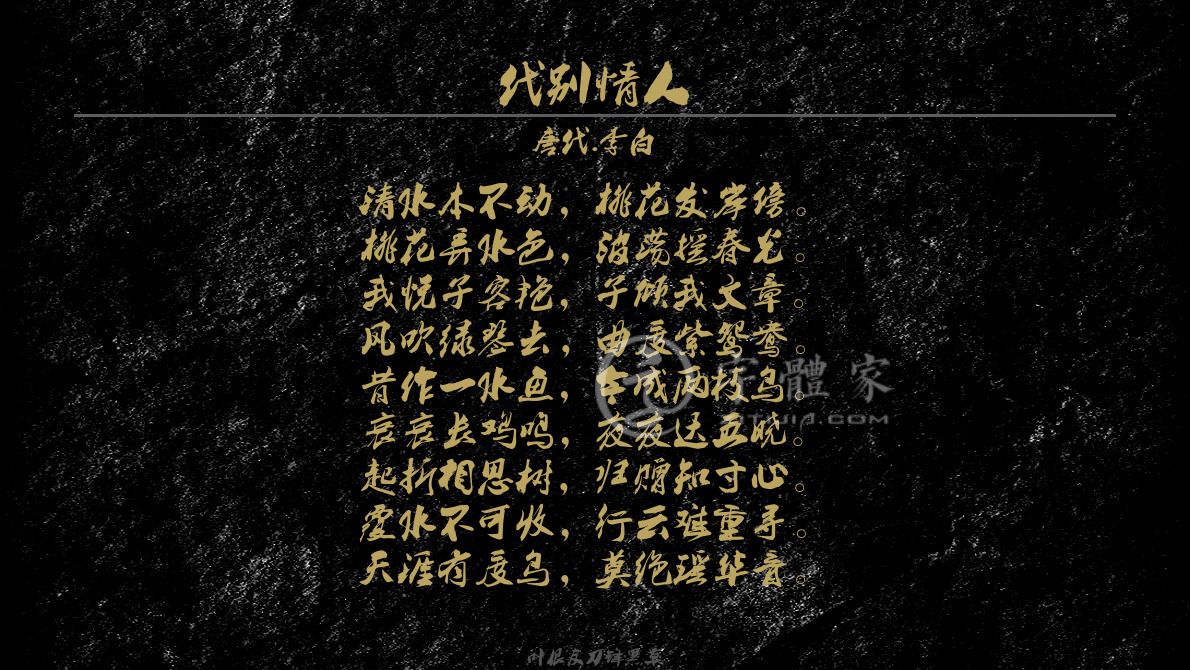 代别情人
唐代.李白
清水本不动，桃花发岸傍。
桃花弄水色，波荡摇春光。
我悦子容艳，子倾我文章。
风吹绿琴去，曲度紫鸳鸯。
昔作一水鱼，今成两枝鸟。
哀哀长鸡鸣，夜夜达五晓。
起折相思树，归赠知寸心。
覆水不可收，行云难重寻。
天涯有度鸟，莫绝瑶华音。
字體家